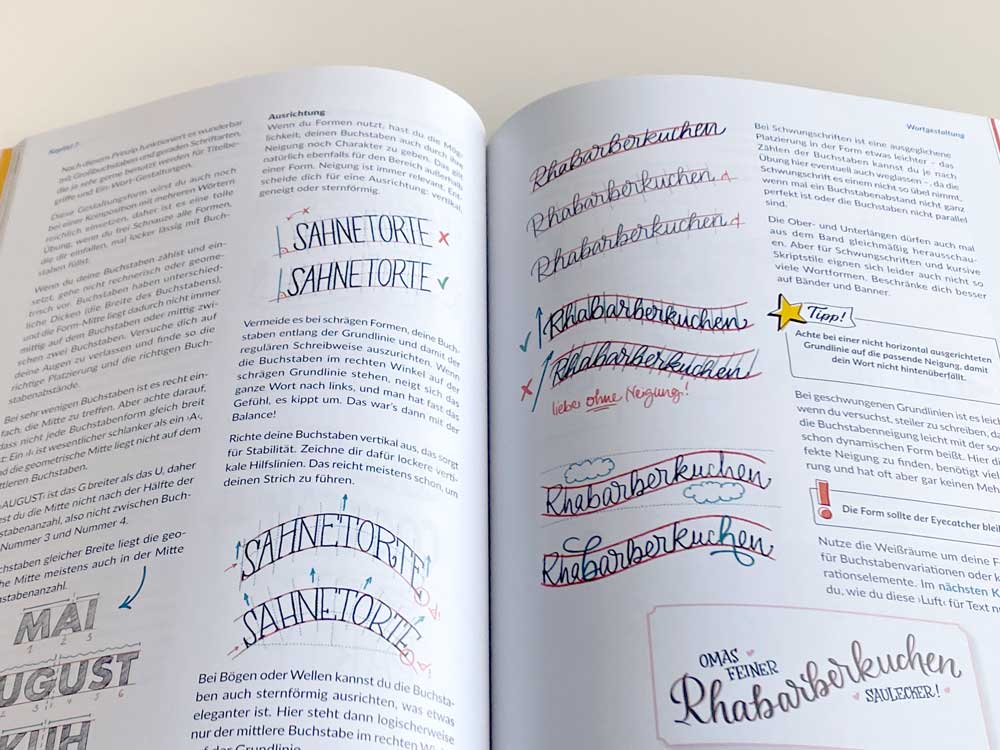 Kapitel 7
Nach diesem Prinzip funktioniert es wunderbar
mit Großbuchstaben und geraden Schriftarten,
die ja sehr gerne benutzt werden für Titelbe-
griffe und Ein-Wort-Gestaltungen.
Diese Gestaltungsform wirst du auch noch
bei einer Komposition mit mehreren Wörtern
reichlich einsetzen, daher ist es eine tolle
Übung, wenn du frei Schnauze alle Formen,
die dir einfallen, mal locker lässig mit Buch-
staben füllst.
Wenn du deine Buchstaben zählst und ein-
setzt, gehe nicht rechnerisch oder geome-
trisch vor. Buchstaben haben unterschied-
liche Dicken (die Breite des Buchstabens),
und die Form-Mitte liegt dadurch nicht immer
mittig auf dem Buchstaben oder mittig zwi-
schen zwei Buchstaben. Versuche dich auf
deine Augen zu verlassen und finde so die
richtige Platzierung und die richtigen Buch-
stabenabstände.
Bei sehr wenigen Buchstaben ist es recht ein-
fach, die Mitte zu treffen. Aber achte darauf,
dass nicht jede Buchstabenform gleich breit
ist: Ein ›I‹ ist wesentlicher schlanker als ein ›A‹,
und die geometrische Mitte liegt nicht auf dem
mittleren Buchstaben.
›AUGUST‹ ist das G breiter als das U, daher
est du die Mitte nicht nach der Hälfte der
hstabenanzahl, also nicht zwischen Buch-
Nummer 3 und Nummer 4.
chstaben gleicher Breite liegt die geo-
che Mitte meistens auch in der Mitte
hstabenanzahl.
MAI
1 2 3
UGUST
KUH
Ausrichtung
Wenn du Formen nutzt, hast du die Mög-
lichkeit, deinen Buchstaben auch durch ihre
Neigung noch Charakter zu geben. Das gilt
natürlich ebenfalls für den Bereich außerhalb
einer Form. Neigung ist immer relevant. Ent-
scheide dich für eine Ausrichtung: vertikal,
geneigt oder sternförmig.
SAHNETORTE
SAHNETORTE
Vermeide es bei schrägen Formen, deine Buch-
staben entlang der Grundlinie und damit der
regulären Schreibweise auszurichten. Wenn
die Buchstaben im rechten Winkel auf der
schrägen Grundlinie stehen, neigt sich das
ganze Wort nach links, und man hat fast das
Gefühl, es kippt um. Das war's dann mit der
Balance!
Richte deine Buchstaben vertikal aus, das sorgt
für Stabilität. Zeichne dir dafür lockere verti-
kale Hilfslinien. Das reicht meistens schon, um
deinen Strich zu führen.
SAHNETORTE
SAHNETORTE
Bei Bögen oder Wellen kannst du die Buchsta-
ben auch sternförmig ausrichten, was etwas
eleganter ist. Hier steht dann logischerweise
nur der mittlere Buchstabe im rechten
auf der Grundlinie.
Rhabarberkuchen
Rhabarberkuchen
Rhabarberkuchen
Rhabarberkuchen
Rhabarberkuchen
lieber ohne Neigung!
Rhabarberkuchen
Rhabarberkuchen
Wortgestaltung
Bei Schwungschriften ist eine ausgeglichene
Platzierung in der Form etwas leichter – das
Zählen der Buchstaben kannst du je nach
Übung hier eventuell auch weglassen –, da die
Schwungschrift es einem nicht so übel nimmt,
wenn mal ein Buchstabenabstand nicht ganz
perfekt ist oder die Buchstaben nicht parallel
sind.
Die Ober- und Unterlängen dürfen auch mal
aus dem Band gleichmäßig herausschau-
en. Aber für Schwungschriften und kursive
Skriptstile eignen sich leider auch nicht so
viele Wortformen. Beschränke dich besser
auf Bänder und Banner.
Tipp!
Achte bei einer nicht horizontal ausgerichteten
Grundlinie auf die passende Neigung, damit
dein Wort nicht hintenüberfällt.
Bei geschwungenen Grundlinien ist es leich
wenn du versuchst, steiler zu schreiben, da
die Buchstabenneigung leicht mit der sow
schon dynamischen Form beißt. Hier di
fekte Neigung zu finden, benötigt viel
rung und hat oft aber gar keinen Meh
Die Form sollte der Eyecatcher bleib
Nutze die Weißräume um deine F
für Buchstabenvariationen oder k
rationselemente. Im nächsten K
du, wie du diese ›Luft‹ für Text n
OMAS
FEINER
Rhabarberkuchen
SAULECKER!